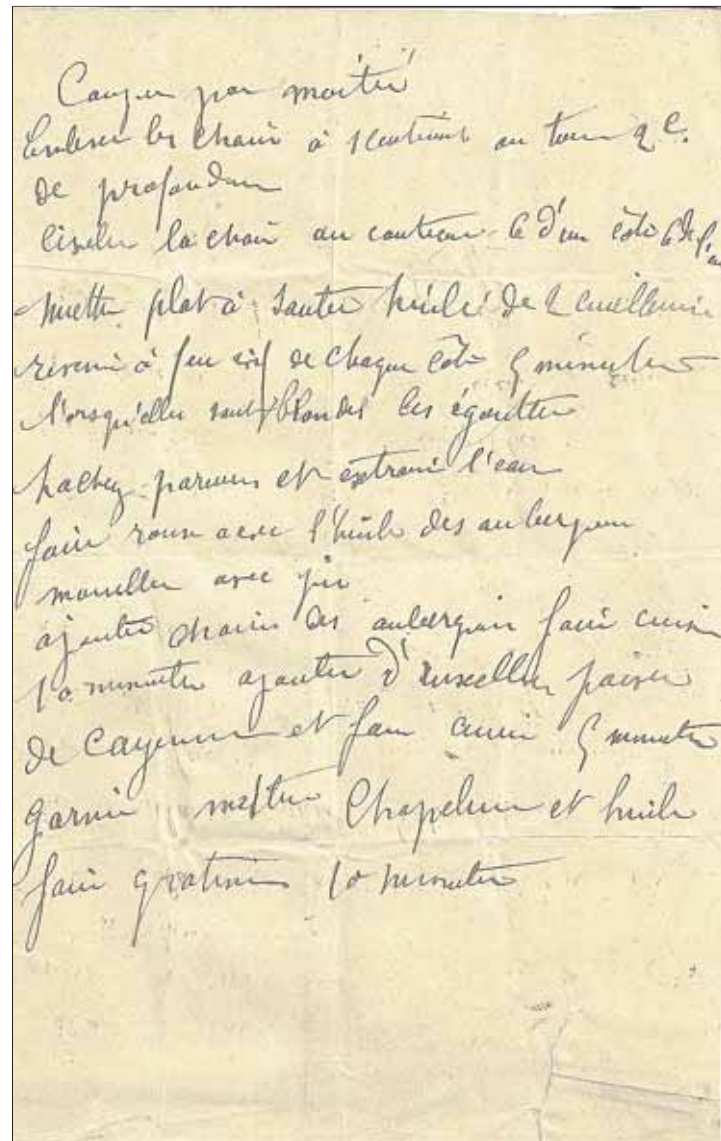 Couper par moitié
les chairs à au tour 2 c.
de profondeur
Ciseler la chair au couteau 6 d'un côté 6 de l'au
mettre plat à sauter huilé de 2
revenir à feu vif de chaque côté 5 minutes
lorsqu'elles sont blondes les égoutter
hachez parures et extraire l'eau
faire roux avec l'huile des aubergines
mouiller avec jus
ajouter chair des aubergines faire cuire
10 minutes ajouter d'uxelles
de Cayenne et faire cuire 5 minutes
garnir mettre Chapelure et huile
faire gratiner 10 minutes